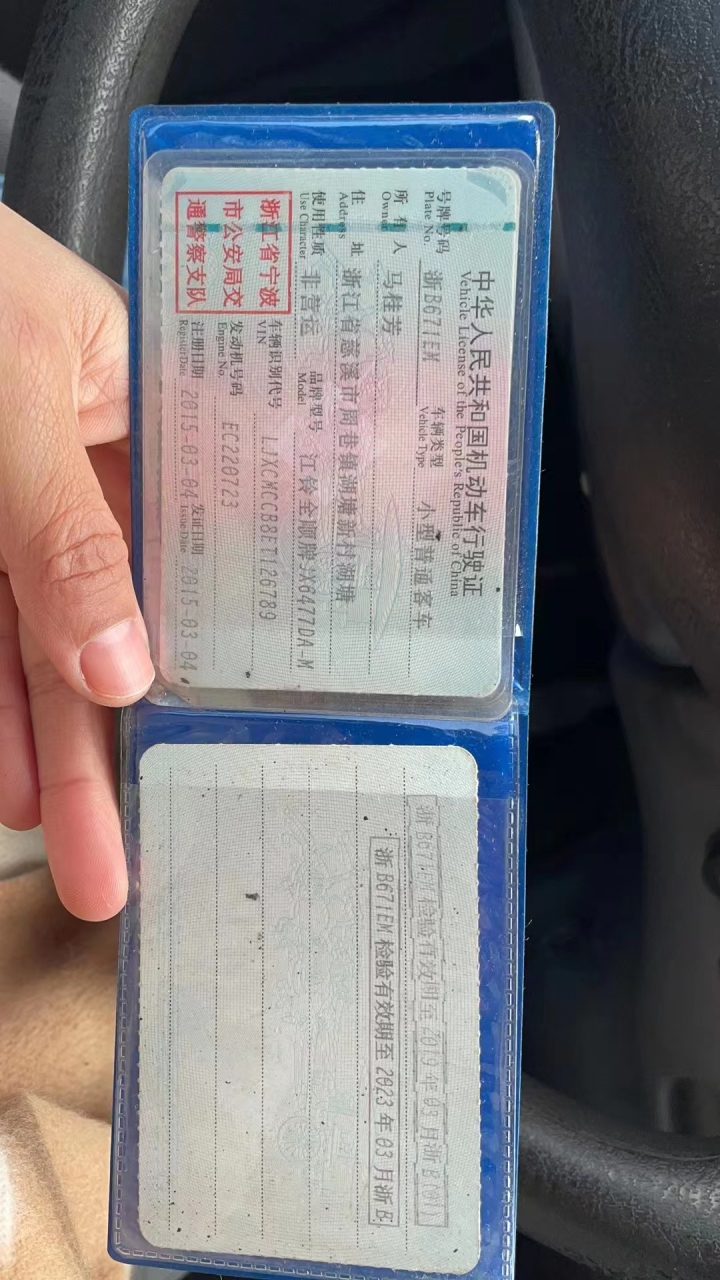 中华人民共和国机动车行驶证
Vehicle License of the People's Republic of China
号牌号码 浙B671EM 车辆类型 小型普通客车
Plate No. Vehicle Type
所有人 马桂芳
Owner
住址 浙江省慈溪市周巷镇湖塘新村湖塘
Address
使用性质 非营运 品牌型号 江铃全顺牌JX6477DA-M
Use Character Model
浙江省宁波
市公安局交
通警察支队
车辆识别代号 LJXCMCCB8ET126789
VIN
发动机号码 EC220723
Engine No.
注册日期 2015-03-04 发证日期 2015-03-04
Register Date Issue Date
浙B671EM检验有效期至2019年03月浙B
浙B671EM检验有效期至2023年03月浙B